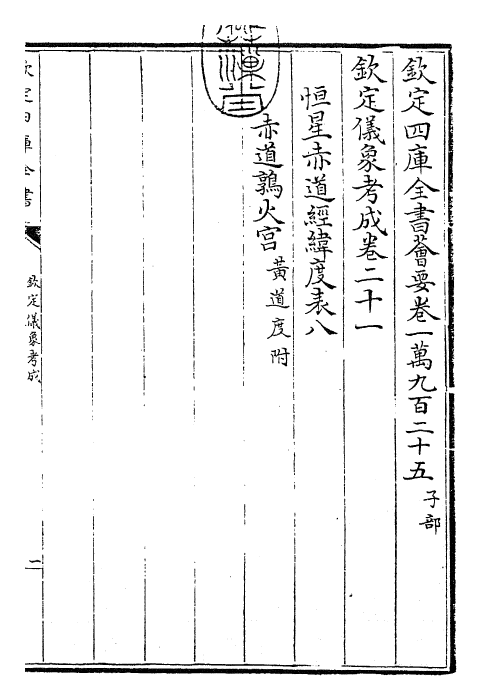 欽定四庫全書薈要卷一萬九百二十五 子部
欽定儀象考成卷二十一
恒星赤道經緯度表八
赤道鶉火宫 黃道度附
欽定四庫全書
欽定儀象考成
一